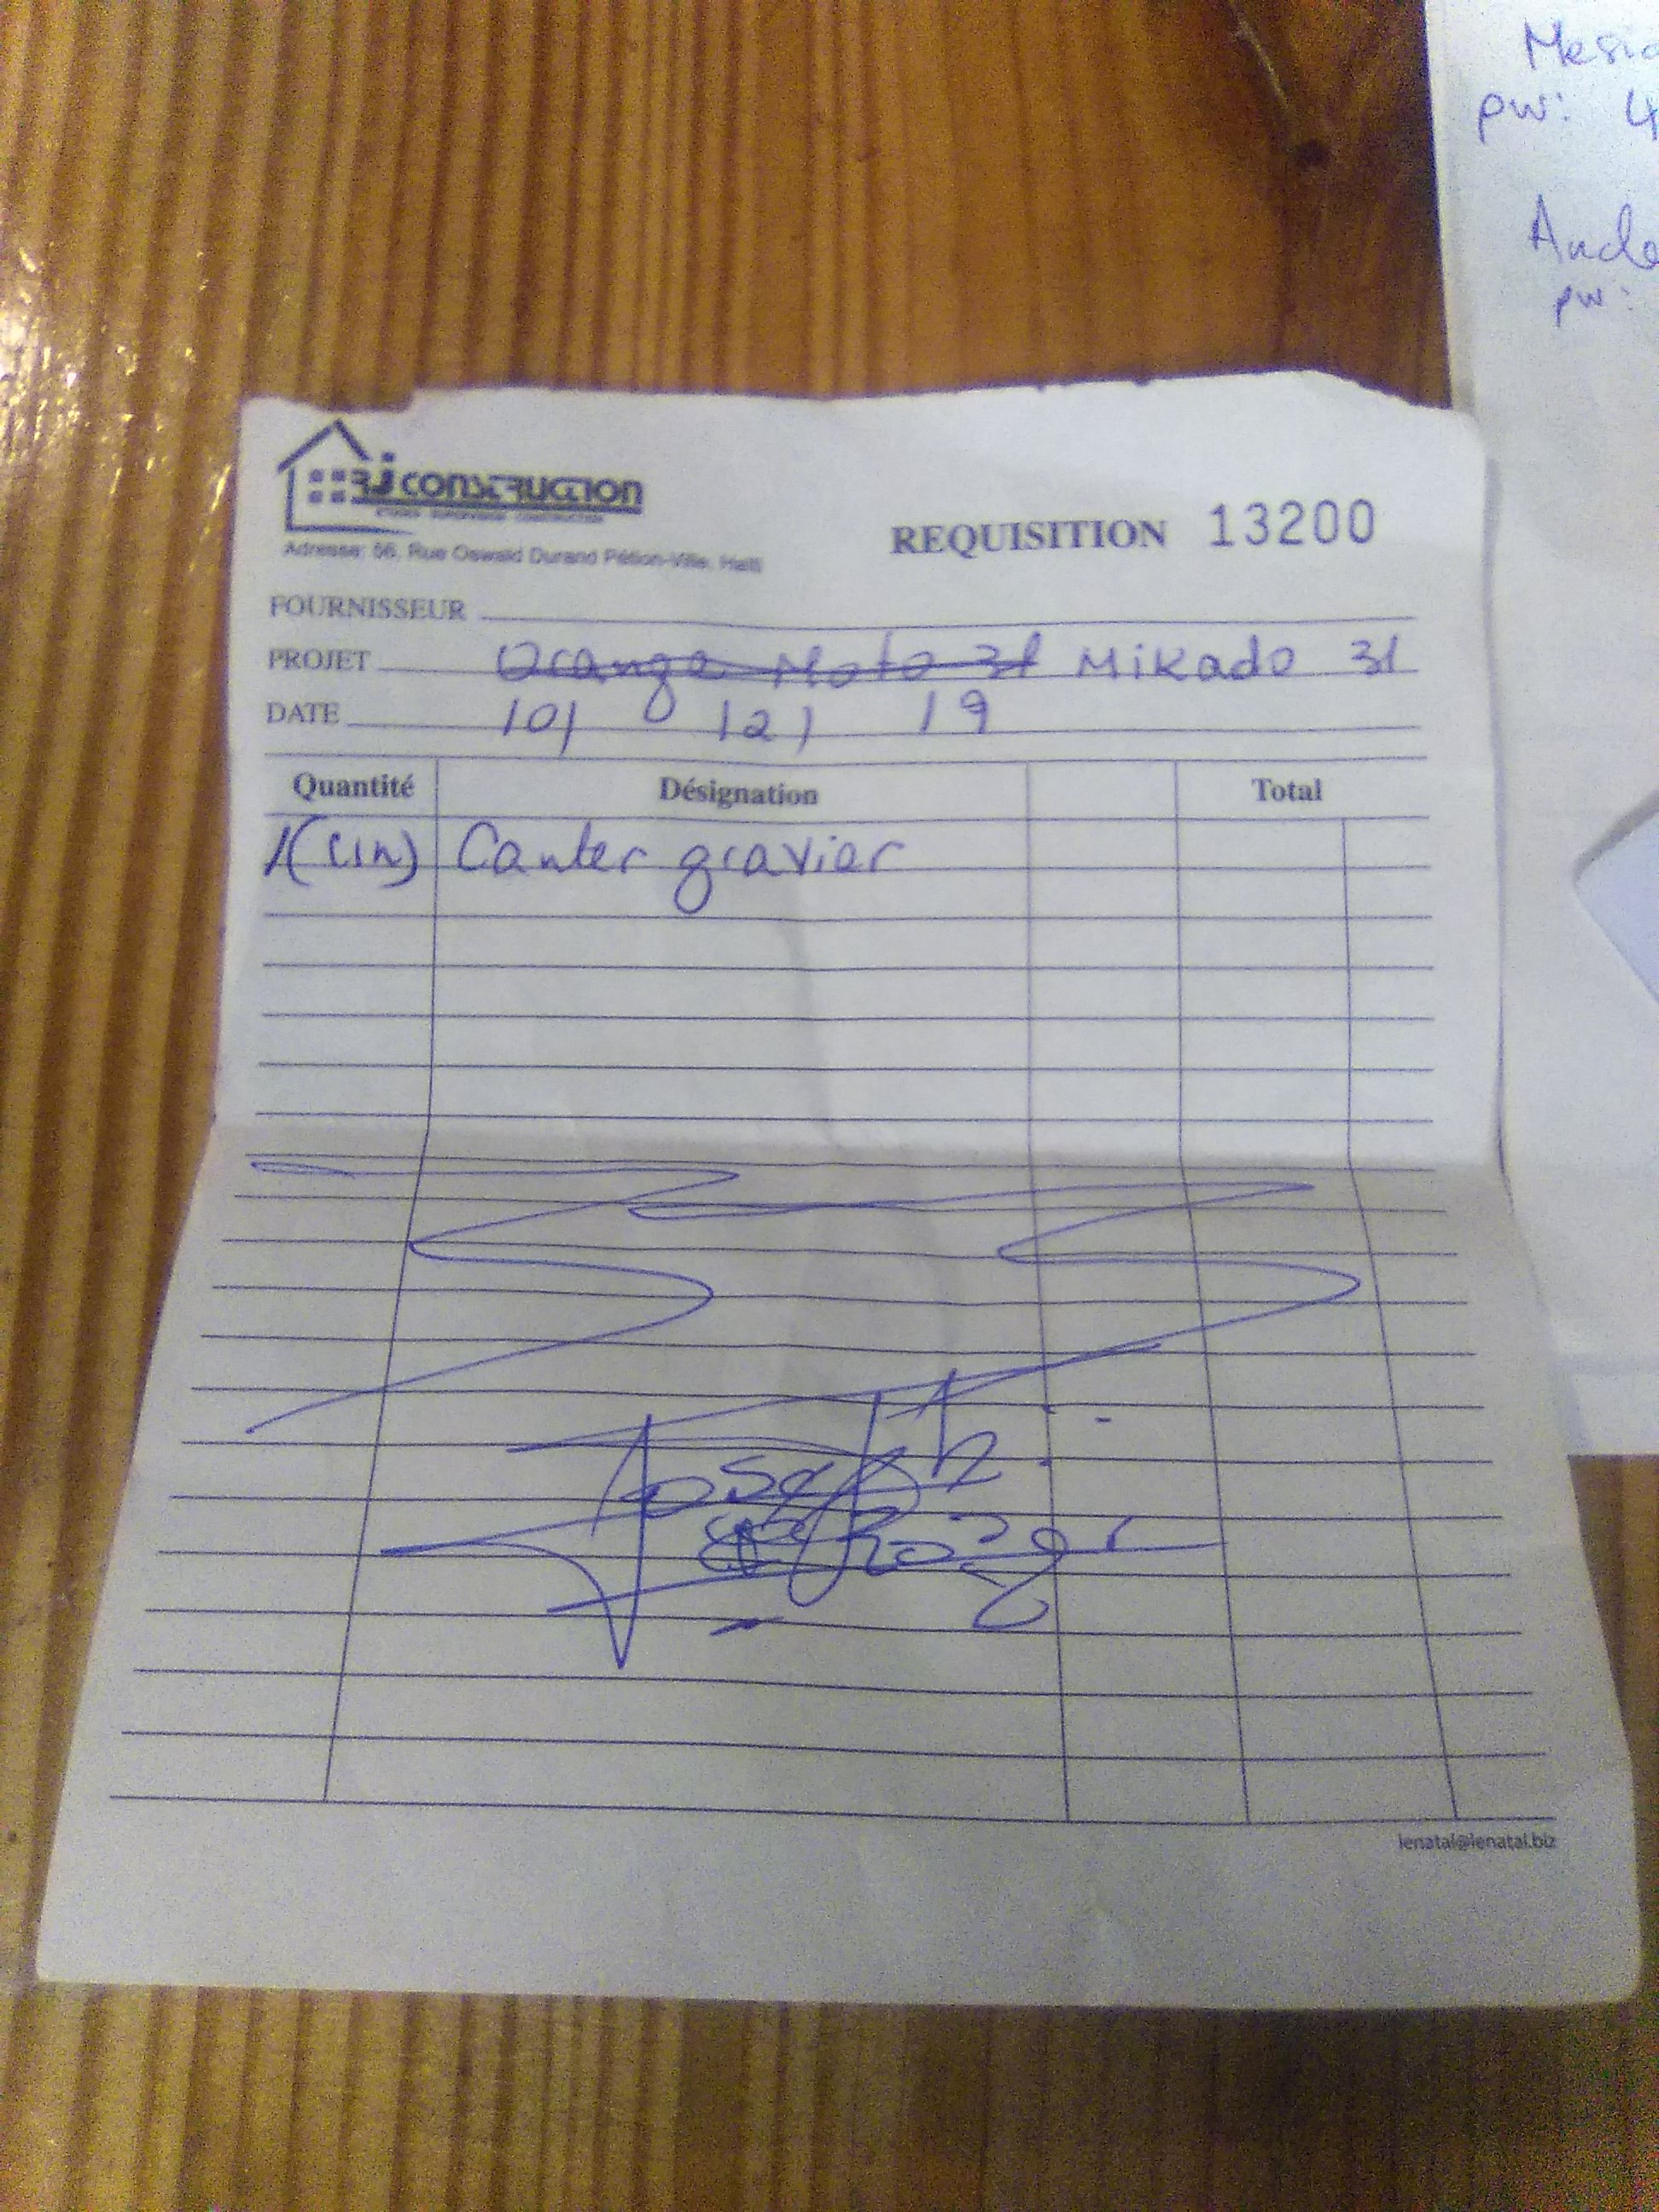 RJ CONSTRUCTION
Adresse: 56, Rue Oswald Durand Pétion-Ville, Haiti
REQUISITION 13200
FOURNISSEUR
PROJET Orange Moto 31 Mikado 31
DATE 10/ 12/ 19
Quantité Désignation Total
1(un) Canter gravier
Joseph
Roger
lenatal@lenatal.biz
pw: 4
pw: